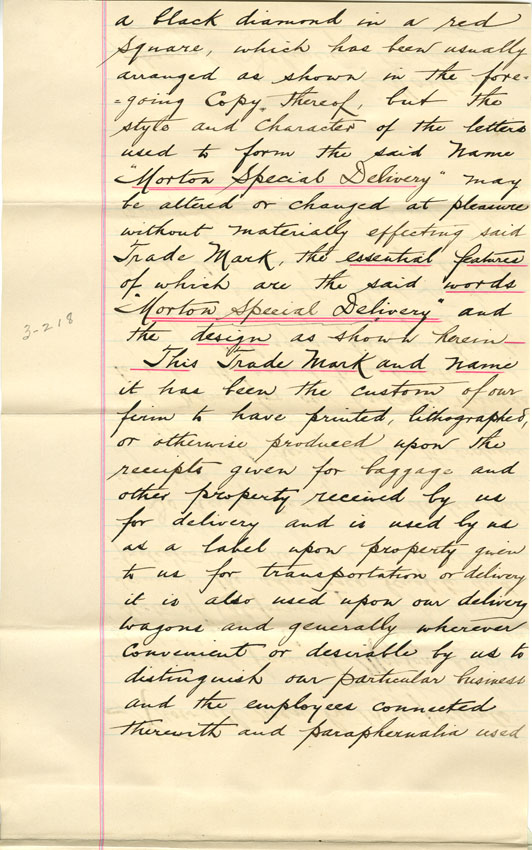 a black diamond in a red
Square, which has been usually
arranged as shown in the fore=
=going Copy thereof, but the
style and Character of the letters
used to form the said Name
"Morton Special Delivery" may
be altered or changed at pleasure
without materially effecting said
Trade Mark, the essential features
of which are the said words
"Morton Special Delivery" and
the design as shown herein
3-218
This Trade Mark and name
it has been the custom of our
firm to have printed, lithographed,
or otherwise produced upon the
receipts given for baggage and
other property received by us
for delivery and is used by us
as a label upon property given
to us for transportation or delivery
it is also used upon our delivery
wagons and generally wherever
Convenient or desirable by us to
distinguish our particular business
and the employees connected
therewith and paraphernalia used